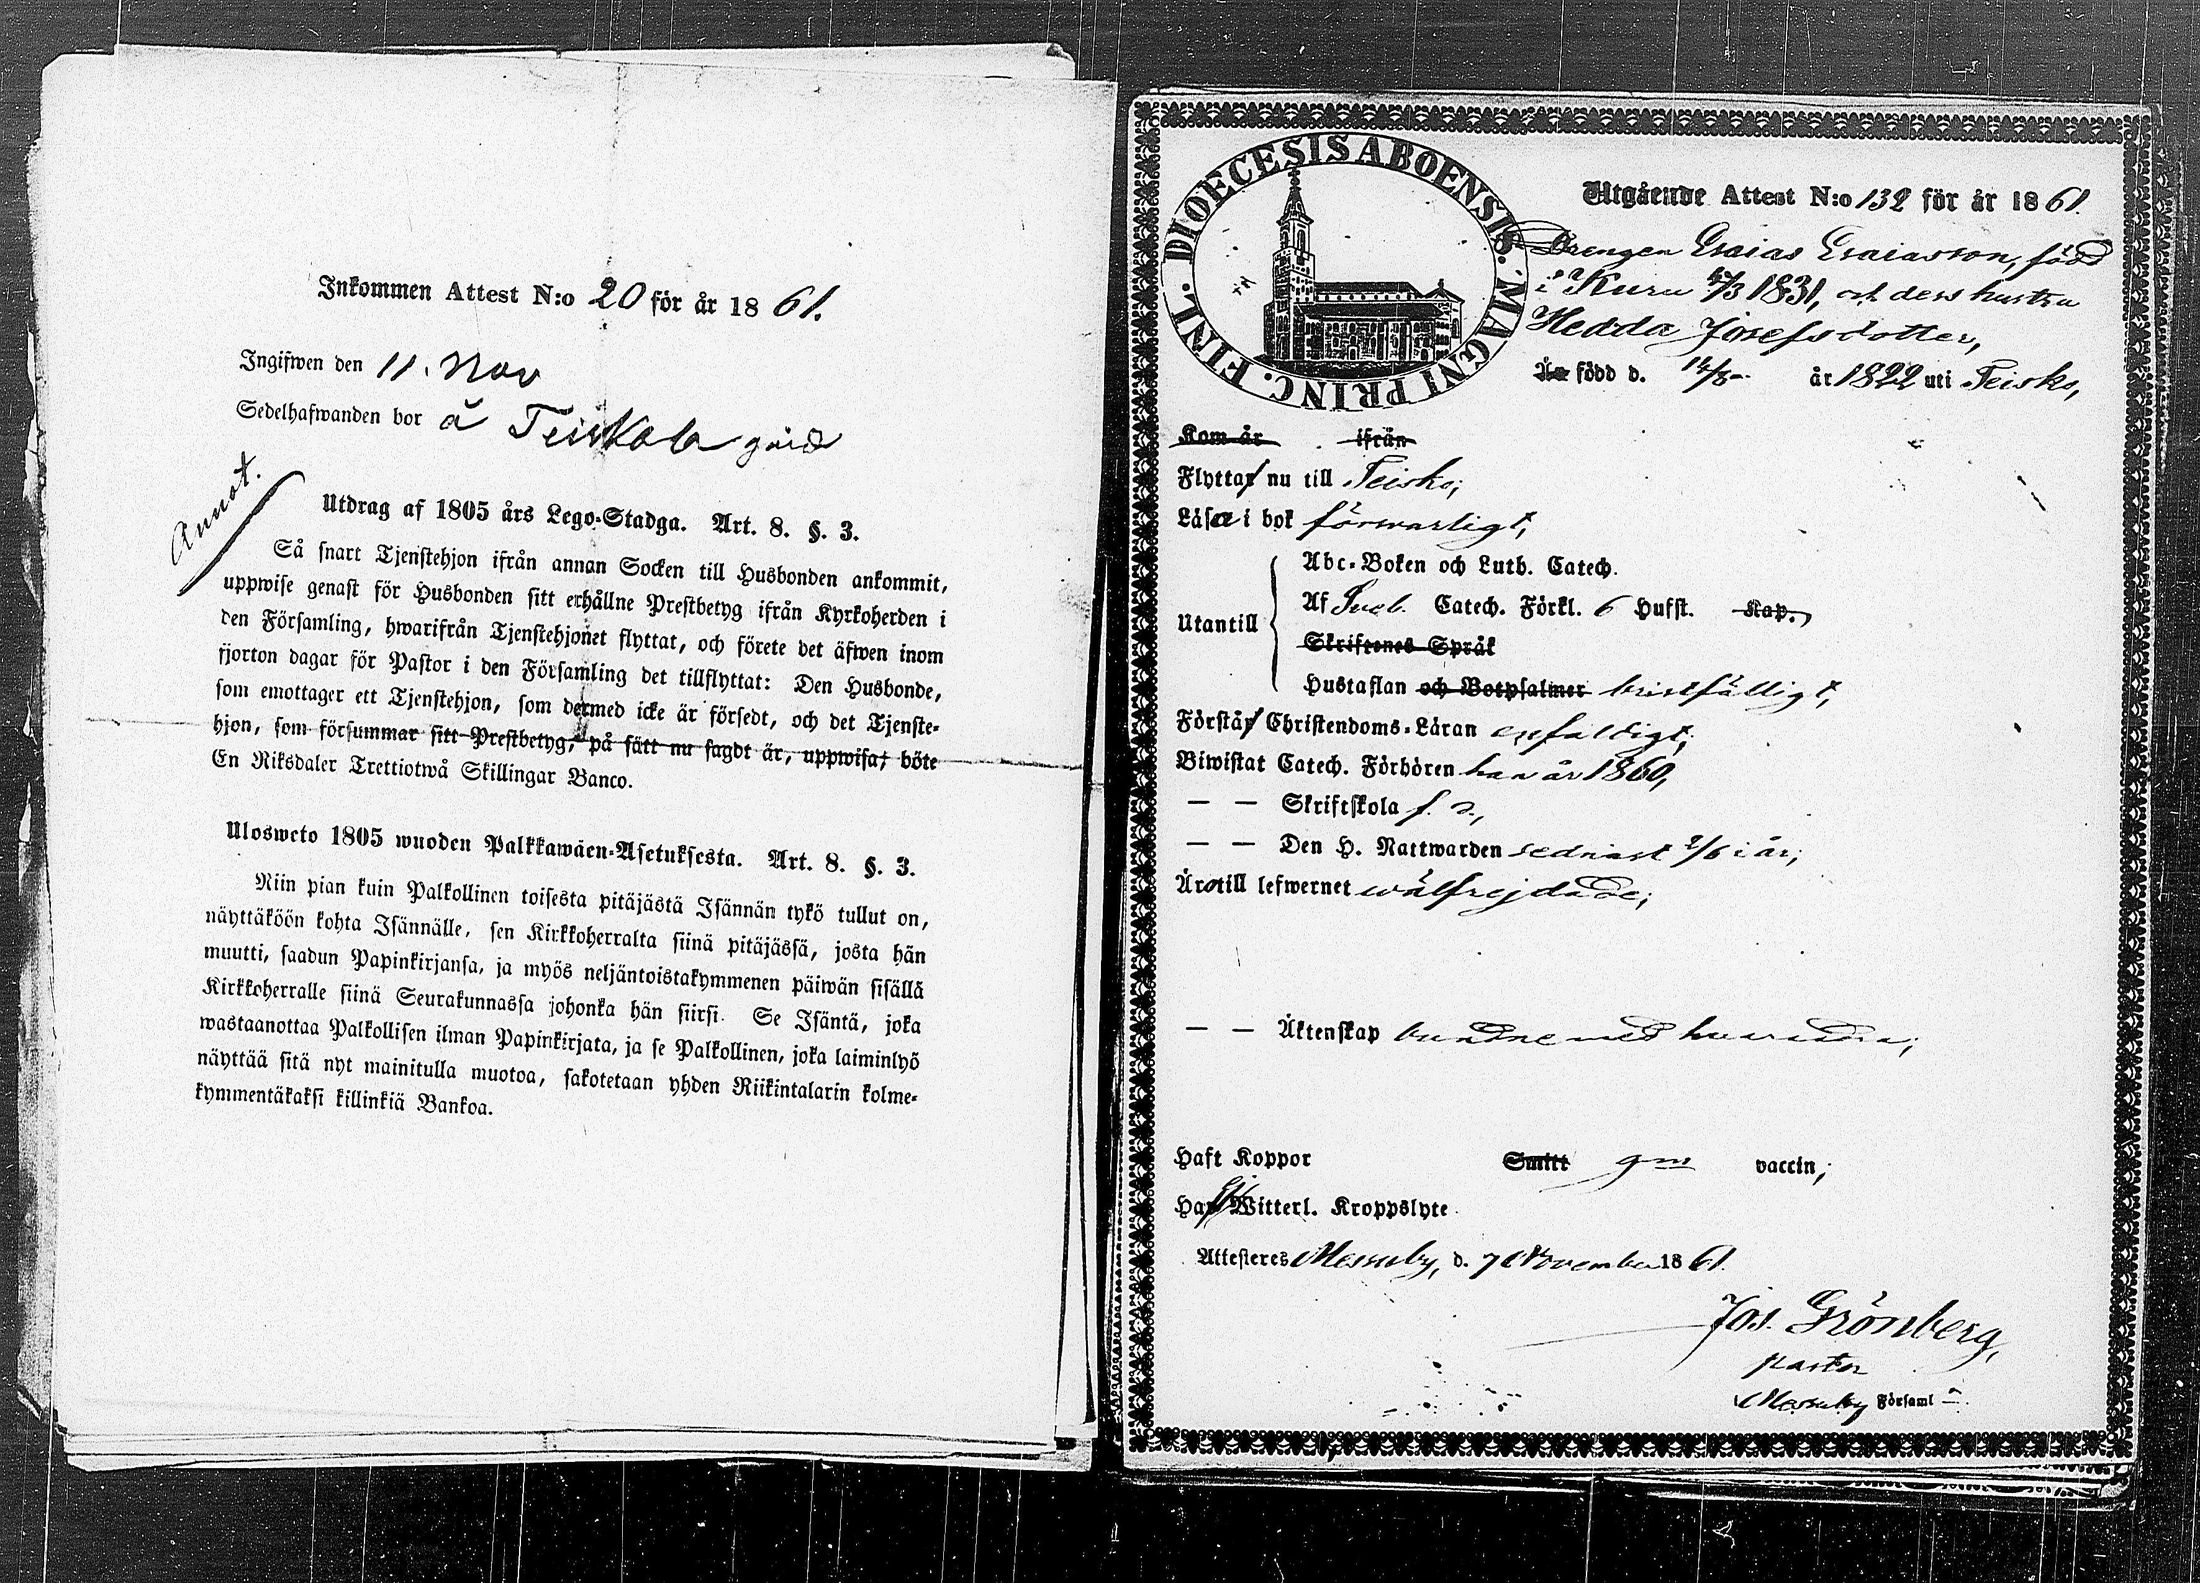 Inkommen Attest N:o 20 för år 1861.
Ingifwen den 11. Nov
Sedelhafwanden bor å Teiskola gård
Annot.
Utdrag af 1805 års Lego-Stadga. Art. 8. §. 3.
Så snart Tjenstehjon ifrån annan Socken till Husbonden ankommit,
uppwise genast för Husbonden sitt erhållne Prestbetyg ifrån Kyrkoherden i
den Församling, hwarifrån Tjenstehjonet flyttat, och förete det äfwen inom
fjorton dagar för Pastor i den Församling det tillflyttat: Den Husbonde,
som emottager ett Tjenstehjon, som dermed icke är försedt, och det Tjenste-
hjon, som försummar sitt Prestbetyg, på sätt nu sagdt är, uppwisa, böte
En Riksdaler Trettiotwå Skillingar Banco.
Ulosweto 1805 wuoden Palkkawäen-Asetuksesta. Art. 8. §. 3.
Niin pian kuin Palkollinen toisesta pitäjästä Isännän tykö tullut on,
näyttäköön kohta Isännälle, sen Kirkkoherralta siinä pitäjässä, josta hän
muutti, saadun Papinkirjansa, ja myös neljäntoistakymmenen päiwän sisällä
Kirkkoherralle siinä Seurakunnassa johonka hän siirsi. Se Isäntä, joka
wastaanottaa Palkollisen ilman Papinkirjata, ja se Palkollinen, joka laiminlyö
näyttää sitä nyt mainitulla muotoa, sakotetaan yhden Riikintalarin kolme-
kymmentäkaksi killinkiä Bankoa.
DIOECESIS ABOENSIS. MAGNI PRINC. FINL.
Utgående Attest N:o 132 för år 1861.
Drengen Esaias Esaiasson, född
i Kuru /3 1831, och dess hustru
Hedda Josefsdotter,
Är född d. 14/8 år 1822 uti Teisko,
Kom år ifrån
Flytta nu till Teisko;
Läsa i bok förswarligt,
Abc-Boken och Luth. Catech.
Utantill Af Sveb. Catech. Förkl. 6 Hufst. Kap.,
Skriftenes Språk
Hustaflan och Botpsalmer bristfälligt,
Förstå Christendoms-Läran enfaldigt;
Biwistat Catech. Förhören han år 1860,
— — Skriftskola f. d.,
— — Den H. Nattwarden sednast 2/6 i år;
Äro till lefwernet wälfrejdade;
— — Äktenskap bundne med hwarandra;
Haft Koppor Smitt gm vaccin;
Haf Ej Witterl. Kroppslyte
Attesteres Messuby, d. 7 November 1861.
Jos. Grönberg,
pastor
Messuby Församl